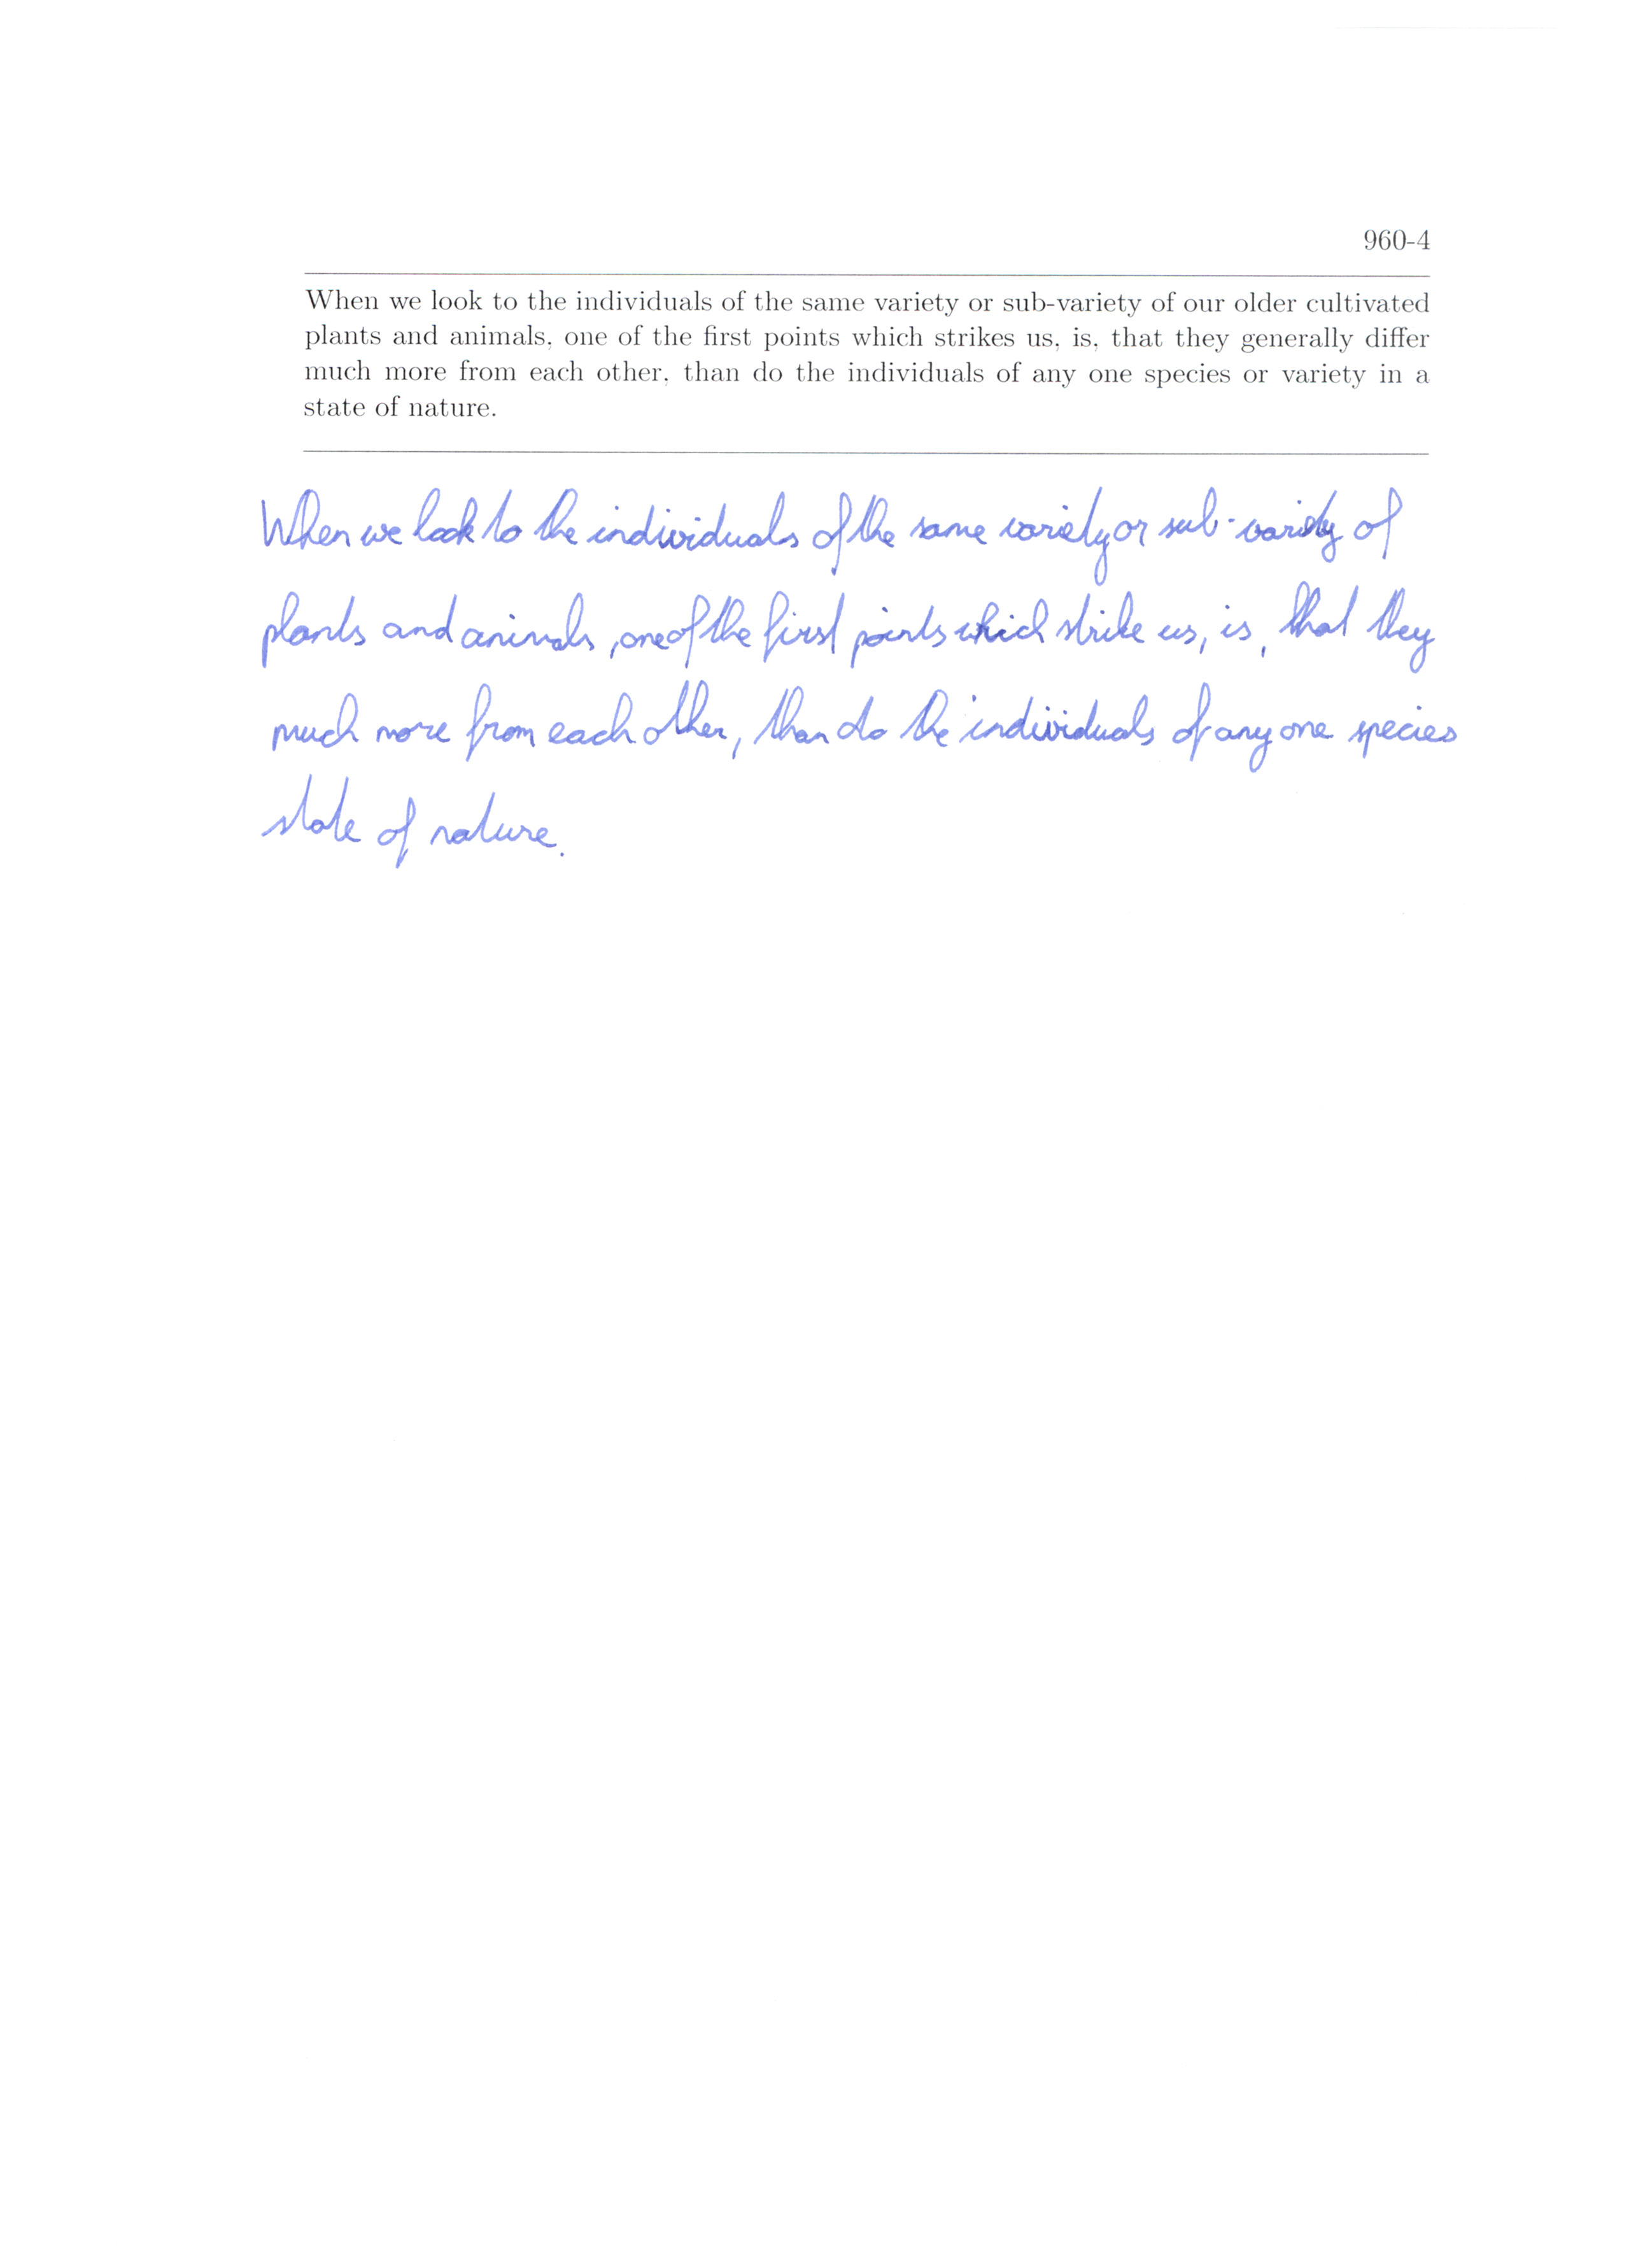 960-4
When we look to the individuals of the same variety or sub-variety of our older cultivated
plants and animals, one of the first points which strikes us, is, that they generally differ
much more from each other, than do the individuals of any one species or variety in a
state of nature.
When we look to the individuals of the same variety or sub-variety of
plants and animals, one of the first points which strike us, is, that they
much more from each other, than do the individuals of any one species
state of nature.